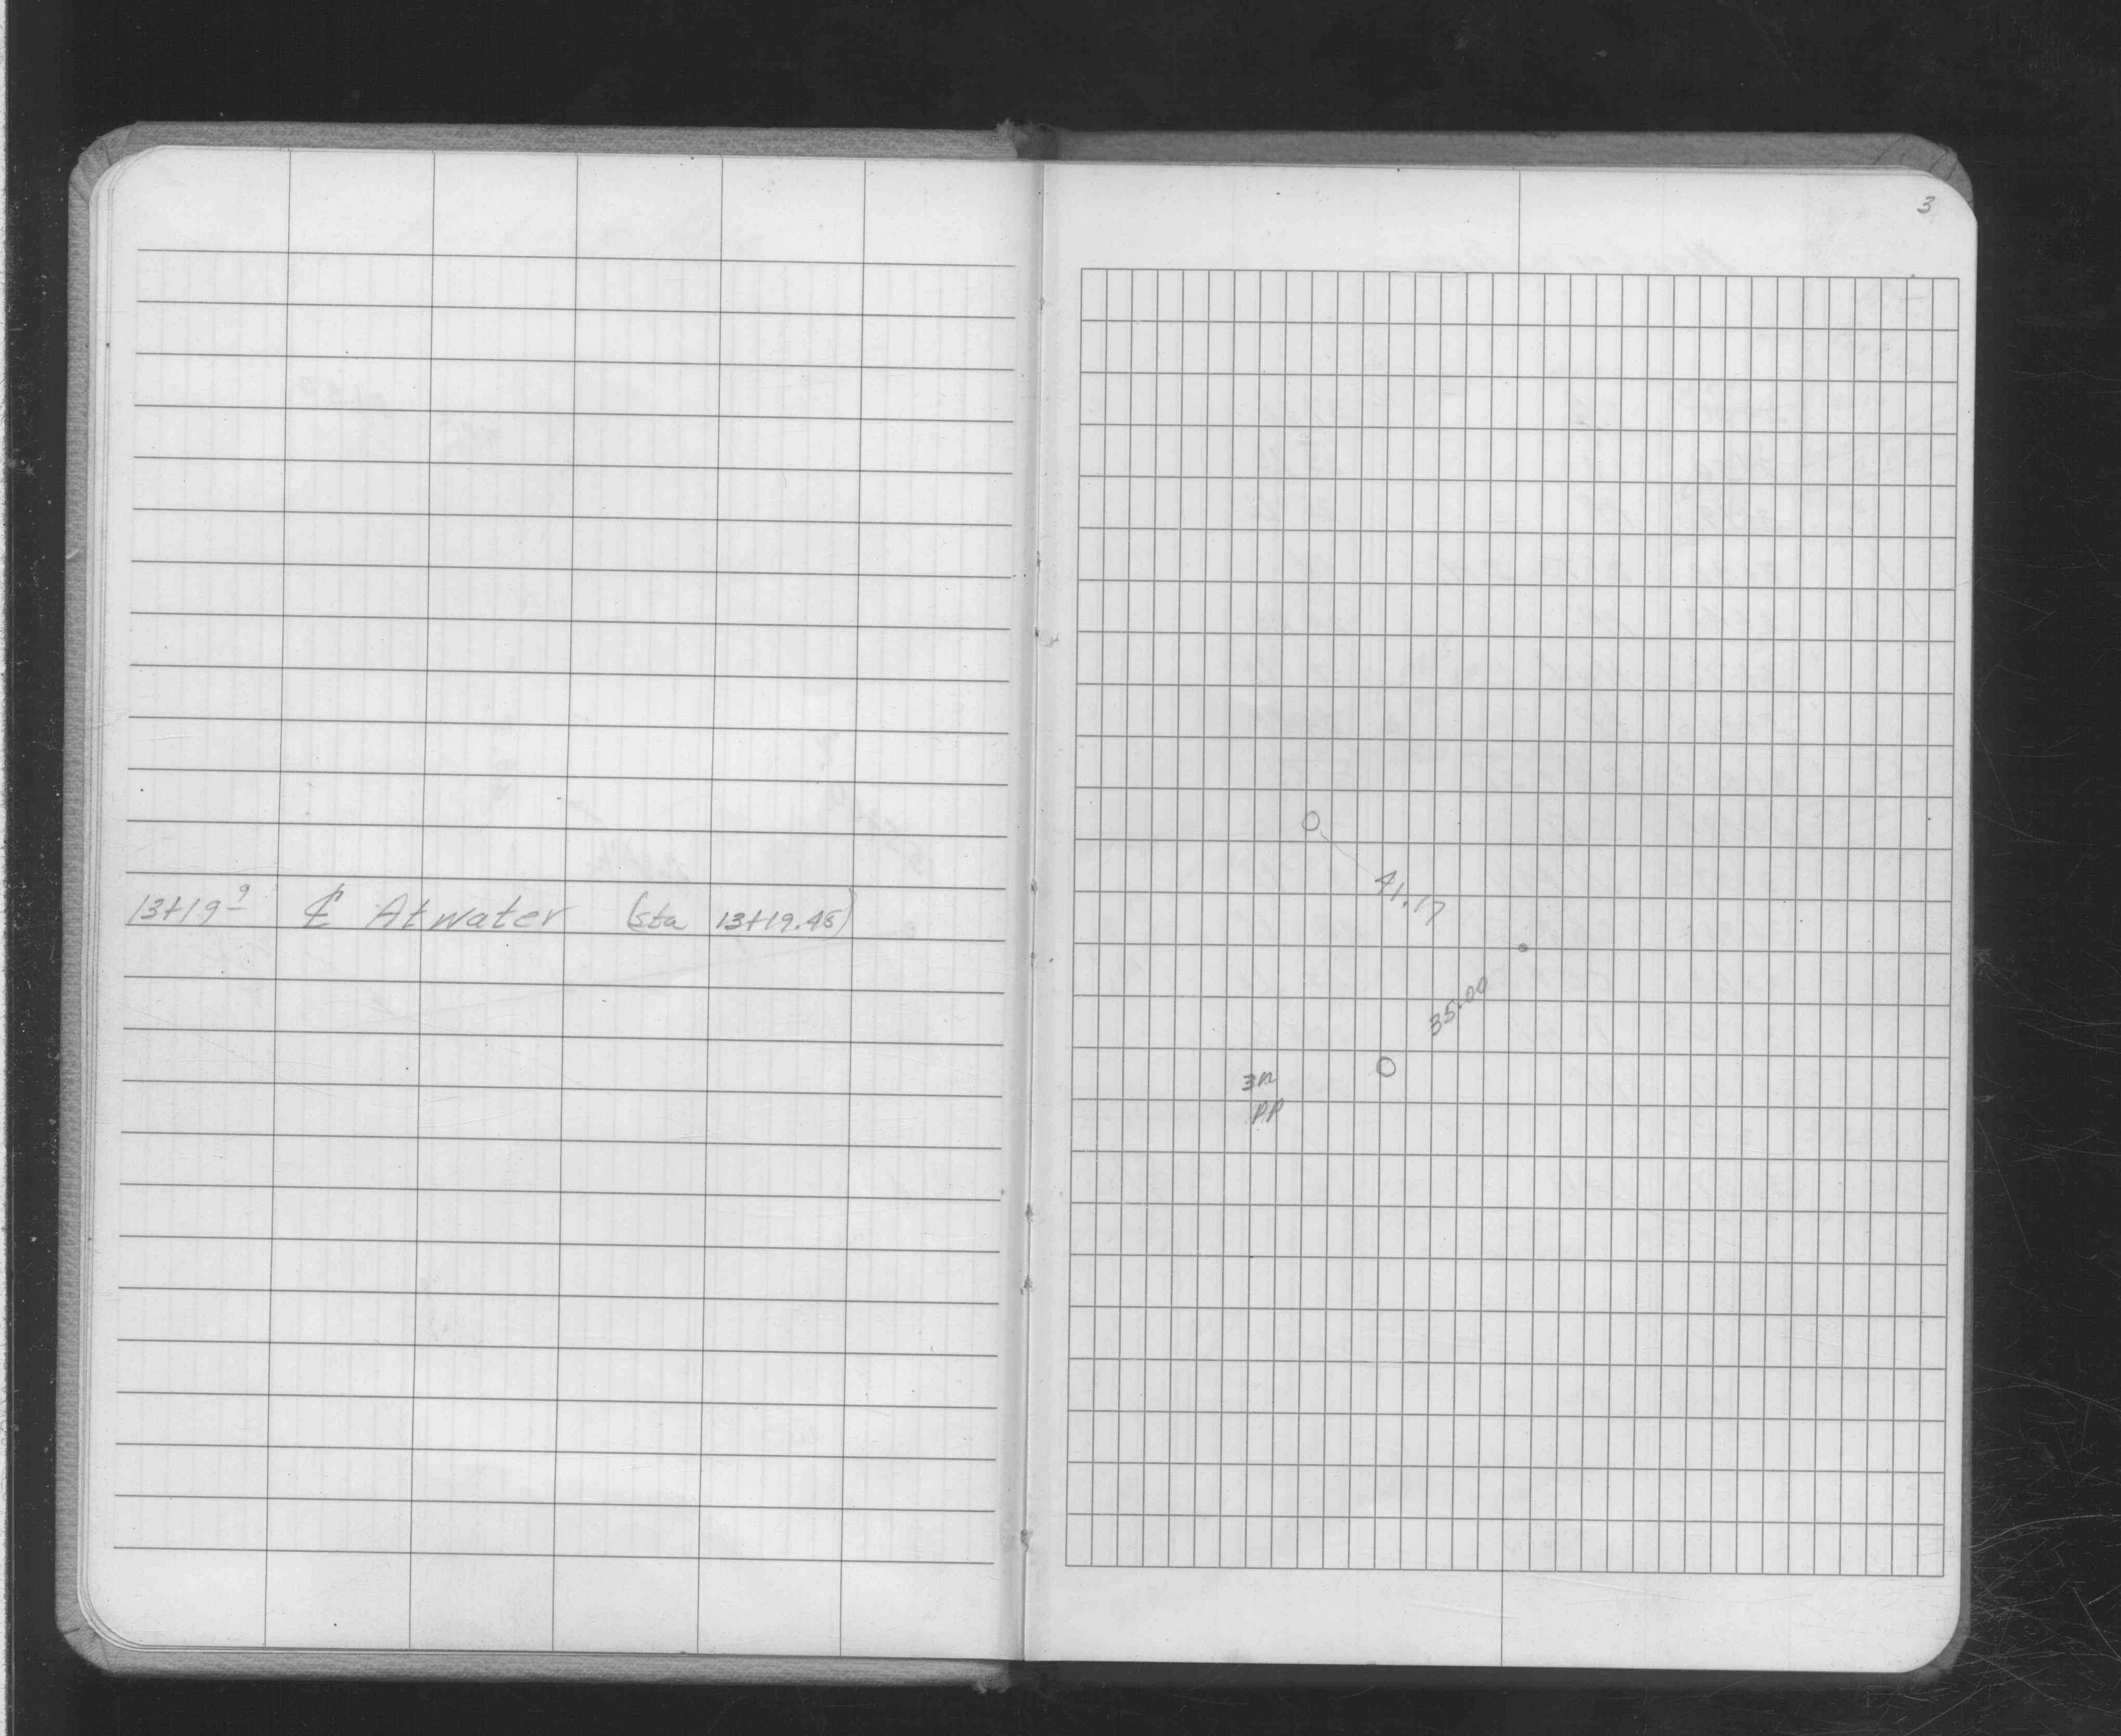 3
13+19⁹ ₵ Atwater (sta 13+19.45)
41.17
35.00
PP